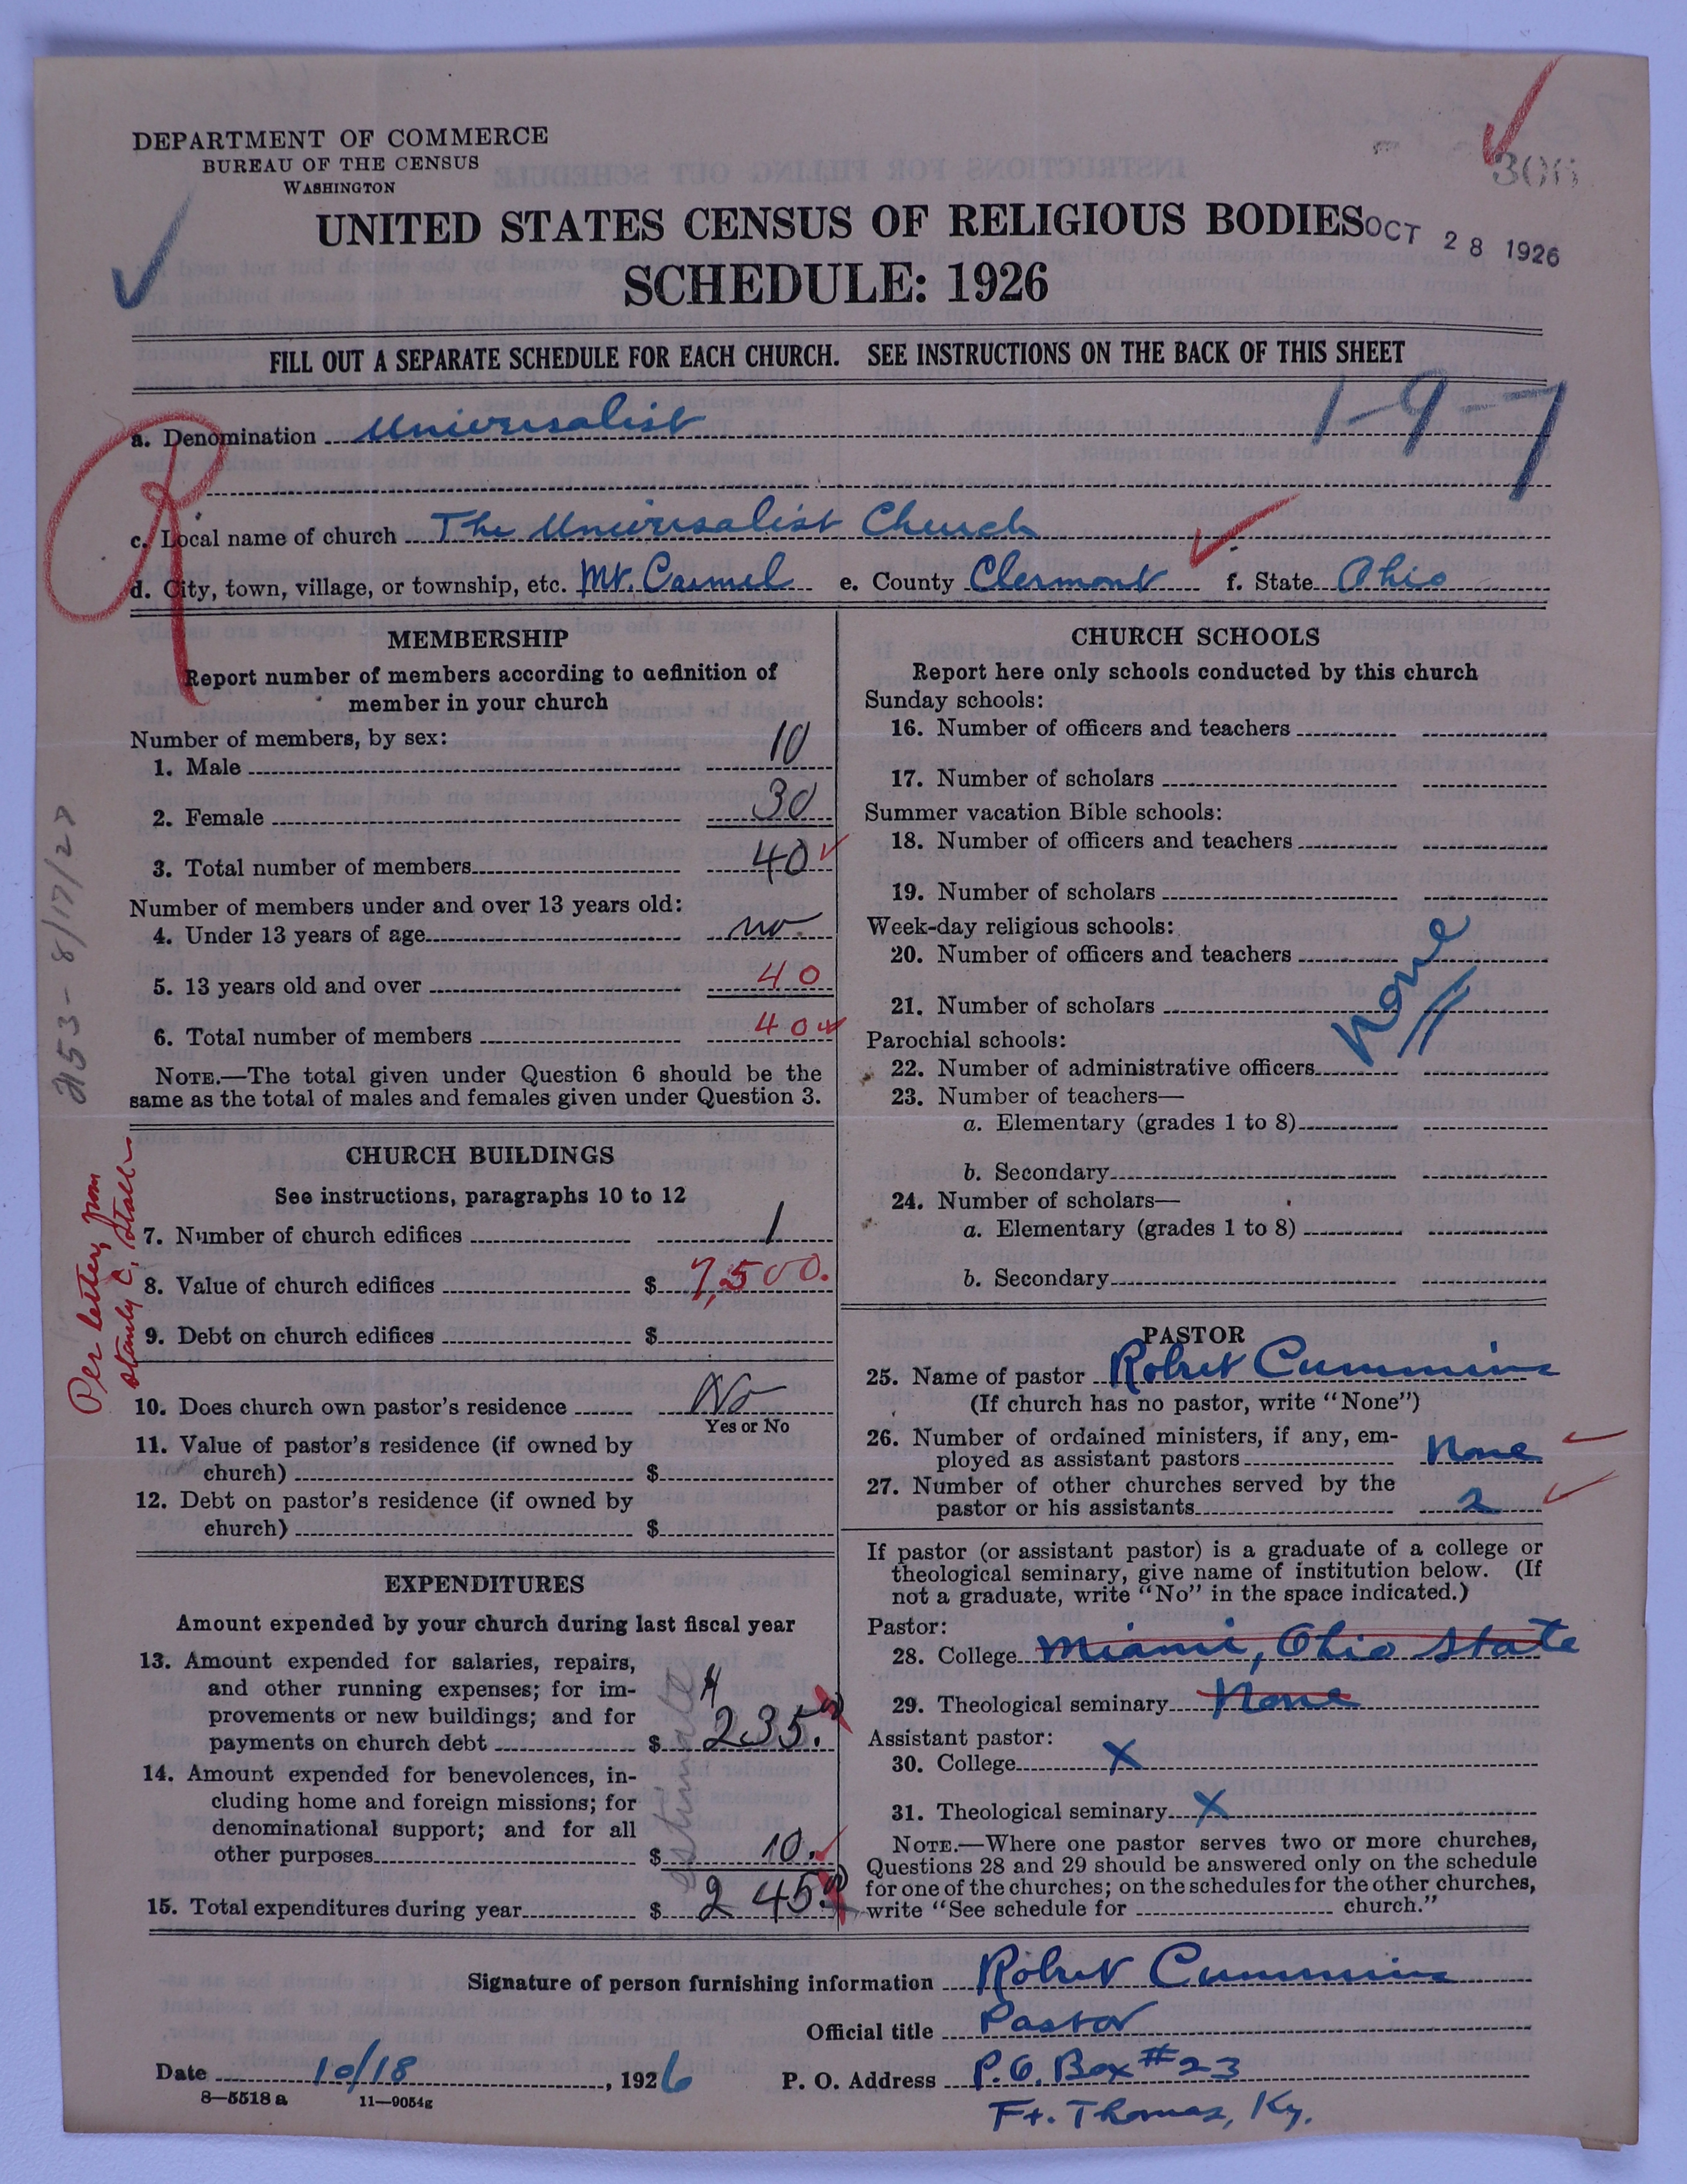 DEPARTMENT OF COMMERCE
BUREAU OF THE CENSUS
WASHINGTON
306
UNITED STATES CENSUS OF RELIGIOUS BODIES
OCT 28 1926
SCHEDULE: 1926
FILL OUT A SEPARATE SCHEDULE FOR EACH CHURCH. SEE INSTRUCTIONS ON THE BACK OF THIS SHEET
1-9-7
R
a. Denomination Universalist
c. Local name of church The Universalist Church
d. City, town, village, or township, etc. Mt. Carmel e. County Clermont f. State Ohio
MEMBERSHIP
Report number of members according to definition of
member in your church
Number of members, by sex:
1. Male 10
2. Female 30
3. Total number of members 40
Number of members under and over 13 years old:
4. Under 13 years of age no.
5. 13 years old and over 40
6. Total number of members 40
NOTE.—The total given under Question 6 should be the
same as the total of males and females given under Question 3.
8/17/27
CHURCH BUILDINGS
See instructions, paragraphs 10 to 12
7. Number of church edifices 1
8. Value of church edifices $ 7,500.
9. Debt on church edifices $
Per letter from
Stanly C. Stall
10. Does church own pastor's residence No
Yes or No
11. Value of pastor's residence (if owned by
church) $
12. Debt on pastor's residence (if owned by
church) $
EXPENDITURES
Amount expended by your church during last fiscal year
13. Amount expended for salaries, repairs,
and other running expenses; for im-
provements or new buildings; and for
payments on church debt $ 235.
14. Amount expended for benevolences, in-
cluding home and foreign missions; for
denominational support; and for all
other purposes $ 10.
15. Total expenditures during year $ 245.
Estimated
CHURCH SCHOOLS
Report here only schools conducted by this church
Sunday schools:
16. Number of officers and teachers
17. Number of scholars
Summer vacation Bible schools:
18. Number of officers and teachers
19. Number of scholars
Week-day religious schools:
20. Number of officers and teachers
21. Number of scholars
None
Parochial schools:
22. Number of administrative officers
23. Number of teachers—
a. Elementary (grades 1 to 8)
b. Secondary
24. Number of scholars—
a. Elementary (grades 1 to 8)
b. Secondary
PASTOR
25. Name of pastor Robert Cummins
(If church has no pastor, write "None")
26. Number of ordained ministers, if any, em-
ployed as assistant pastors None
27. Number of other churches served by the
pastor or his assistants 2
If pastor (or assistant pastor) is a graduate of a college or
theological seminary, give name of institution below. (If
not a graduate, write "No" in the space indicated.)
Pastor:
28. College Miami, Ohio State
29. Theological seminary None
Assistant pastor:
30. College X
31. Theological seminary X
NOTE.—Where one pastor serves two or more churches,
Questions 28 and 29 should be answered only on the schedule
for one of the churches; on the schedules for the other churches,
write "See schedule for church."
Signature of person furnishing information Robert Cummins
Official title Pastor
Date 10/18, 1926 P. O. Address P.O. Box #23
Ft. Thomas, Ky.
8—5518 a 11—9054g